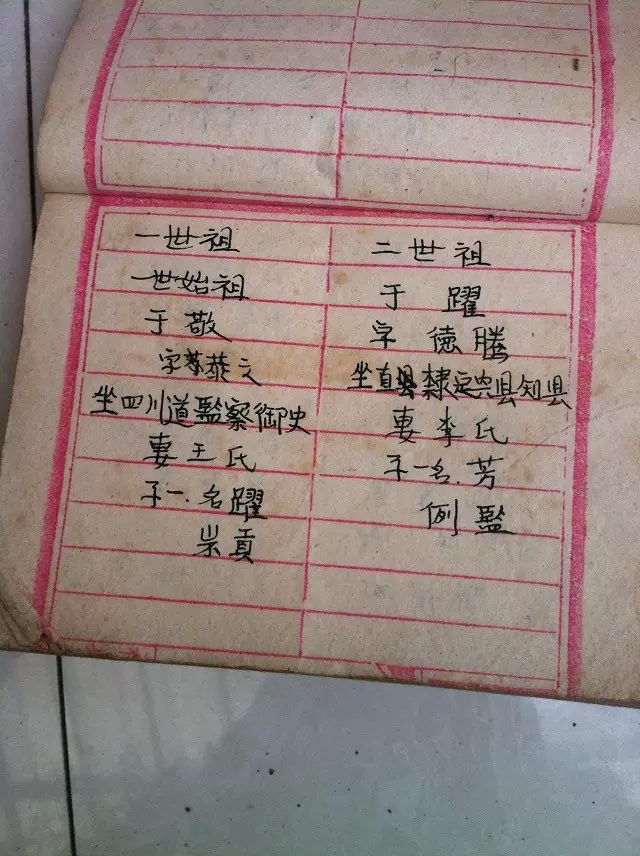 一世祖
一世始祖
于敬
字尊恭文
坐四川道監察御史
妻王氏
子一.名躍
崇貢
二世祖
于躍
字德騰
坐直县隸定兴县知县
妻李氏
子一名.芳
例監